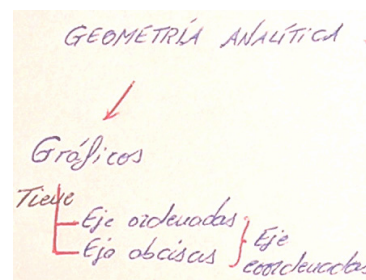 GEOMETRÍA ANALÍTICA
Gráficos
Tiene
Eje ordenadas
Eje abcisas
Eje
coordenadas